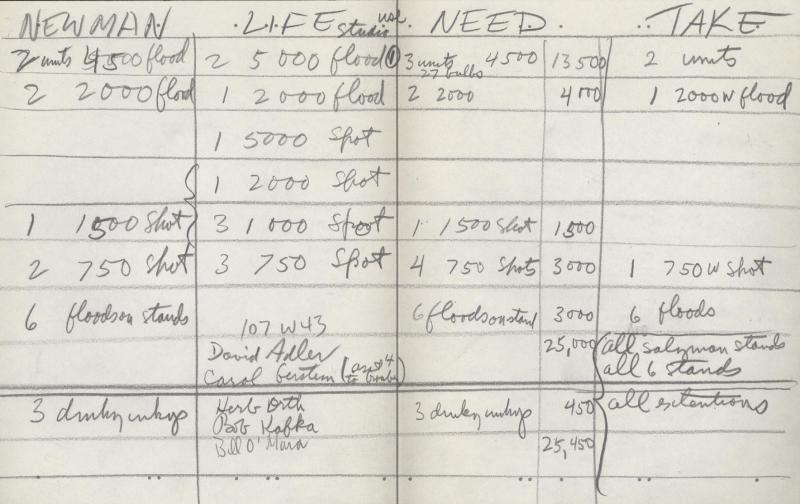 NEWMAN . LIFE studio usl . NEED . TAKE
2 units 4500 flood 2 5000 flood 1 3 units 4500 13500 2 units
27 bulbs
2 2000 flood 1 2000 flood 2 2000 4000 1 2000W flood
1 5000 Spot
1 2000 Spot
1 1500 Spot 3 1000 Spot 1 1500 Spot 1500
2 750 Spot 3 750 Spot 4 750 Spots 3000 1 750W Spot
6 floods on stands 6 floods on stand 3000 6 floods
107 W 43
David Adler 25,000 all salzman stands
Carol (asst to all 6 stands
3 dinky inkys Herb Orth 3 dinky inkys 450 all extentions
Bob Kafka
Bill O'Mara 25,450